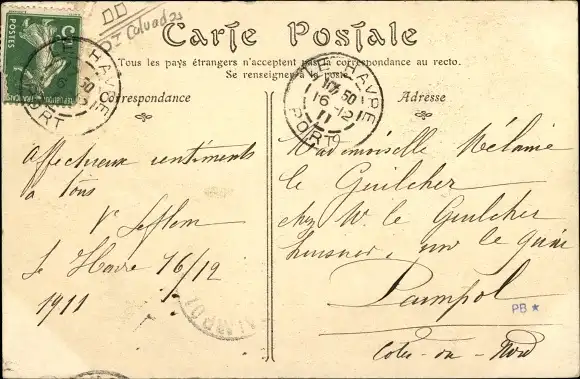 Calvados
Carte Postale
Tous les pays étrangers n'acceptent pas la correspondance au recto.
Se renseigner à la poste
LE HAVRE
PORT
LE HAVRE
50
16-12
11
PORT
Correspondance
Adresse
Affectueux sentiments
à tous
Le Havre 16/12
1911
Mademoiselle Mélanie
le Guilcher
chez M. le Guilcher
sur le quai
Paimpol
Côtes-du-Nord
PB *